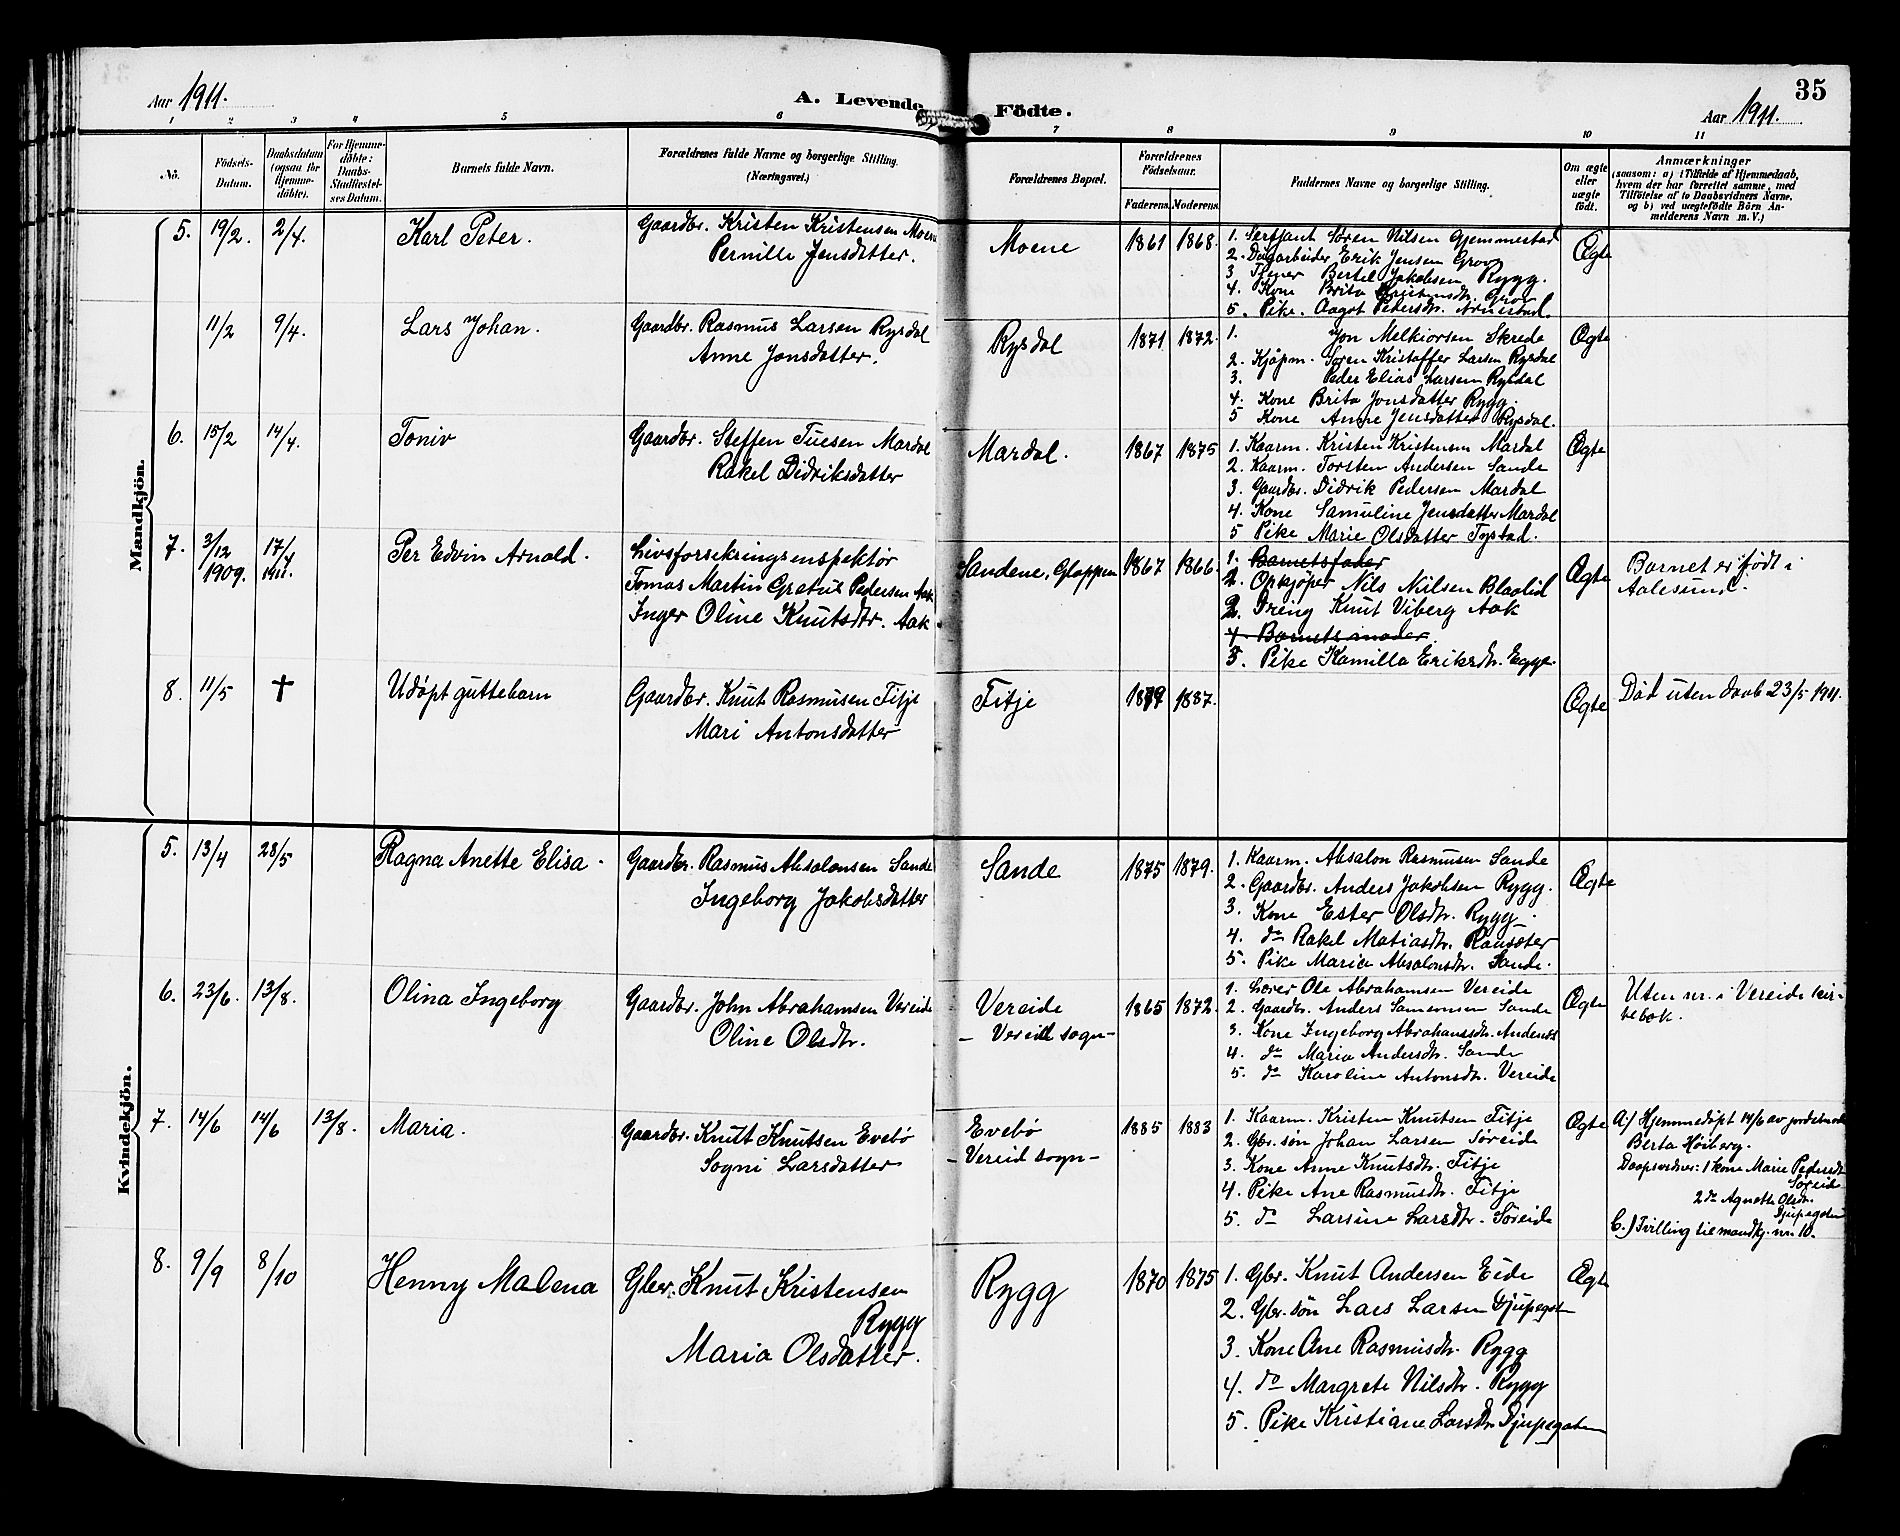 35
Aar 1911.
A. Levende Födte.
Aar 1911.
1 2 3 4 5 6 7 8 9 10 11
No.
Födsels-Datum.
Daabsdatum (ogsaa for Hjemmedöbte).
For Hjemmedöbte: Daabs-Stadfæstelses Datum.
Barnets fulde Navn.
Forældrenes fulde Navne og borgerlige Stilling.
(Næringsvei.)
Forældrenes Bopæl.
Forældrenes Födselsaar.
Faderens. Moderens.
Faddernes Navne og borgerlige Stilling.
Om ægte eller uægte födt.
Anmærkninger
(saasom: a) i Tilfælde af Hjemmedaab,
hvem der har forrettet samme, med
Tilföielse af to Daabsvidners Navne,
og b) ved uægtefödte Börn Anmelderens Navn m. V.)
Mandkjön.
5. 19/2. 2/4. Karl Peter. Gaardbr. Kristen Kristensen Moene
Pernille Jensdatter.
Moene 1861 1868. Ægte
1. Serfjant Søren Nilsen Gjemmestad
2. Dagarbeider Erik Jensen Grov
3 Bertel Jakobsen Rygg.
4. Kone Brita Kristensdtr. Grov
5. Pike. Aagot Petersdtr.
11/2 9/4. Lars Johan. Gaardbr. Rasmus Larsen Rysdal
Anne Jonsdatter.
Rysdal 1871 1872. Ægte
1. Jon Melkiorsen Skrede
2. Kjøpm. Søren Kristoffer Larsen Rysdal
3. Peder Elias Larsen Rysdal
4. Kone Brita Jonsdatter Rygg.
5 Kone Anne Jensdatter Rysdal.
6. 15/2 14/4. Toniv Gaardbr. Steffen Tuesen Mardal
Rakel Didriksdatter
Mardal. 1867 1875 Ægte
1. Kaarm. Kristen Kristensen Mardal
2. Kaarm. Torsten Andersen Sande
3. Gaardbr. Didrik Pedersen Mardal
4. Kone Samuline Jensdatter Mardal
5 Pike Marie Olsdatter Tystad.
7. 3/12 1909. 17/4 1911. Per Edvin Arnold. Livsforsekringsinspektør
Tomas Martin Gretus Pedersen Aak
Inger Oline Knutsdtr. Aak
Sandene, Gloppen 1867 1866. Ægte
1. Barnetsfader
2. Opkjøper Nils Nilsen Blaalid
2. Dreng Knut Viberg Aak
4. Barnets moder.
3. Pike Kamilla Eriksdtr. Egge.
Barnet er født i
Aalesund.
8. 11/5 † Udøpt guttebarn Gaardbr. Knut Rasmusen Fitje
Mari Antonsdatter
Fitje 1879 1887. Ægte
Død uten daab 23/5 1911.
Kvindekjön.
5. 13/4 28/5 Ragna Anette Elisa. Gaardbr. Rasmus Absalonsen Sande
Ingeborg Jakobsdatter
Sande 1875 1879. Ægte
1. Kaarm. Absalon Rasmusen Sande
2. Gaardbr. Anders Jakobsen Rygg.
3. Kone Ester Olsdtr. Rygg.
4. do Rakel Matiasdtr. Rausæter
5. Pike Maria Absalonsdtr. Sande.
6. 23/6. 13/8. Olina Ingeborg Gaardbr. John Abrahamsen Vereide
Oline Olsdtr.
Vereide
- Vereid sogn -
1865 1872. Ægte
1. Lærer Ole Abrahamsen Vereide
2. Gaardbr. Anders Samsonsen Sande
3. Kone Ingeborg Abrahamsdtr. Andenæs
4. do Maria Andersdtr. Sande
5. do Karoline Antonsdtr. Vereide
Uten nr. i Vereide kirkebok.
7. 14/6 14/6 13/8. Maria. Gaardbr. Knutt Knutsen Evebø
Sogni Larsdatter
Evebø
- Vereid sogn -
1885 1883 Ægte
1. Kaarm. Kristen Knutsen Fitje
2. Gbr. søn Johan Larsen Søreide
3. Kone Anne Knutsdtr. Fitje
4. Pike Ane Rasmusdtr. Fitje
5. do Larsine Larsdtr. Søreide
A./ Hjemmedøpt 14/6 av jordetmoder
Berta Høiberg.
1 kone Marie Pedersdtr
Søreide
2 do Agnethe Olsdtr.
Djupegoten
C.) Tvilling til mandkj. nr. 10.
8. 9/9 8/10 Henny Malena Gbr. Knut Kristensen
Rygg
Maria Olsdatter.
Rygg 1870 1875 Ægte
1. Gbr. Knut Andersen Eide
2. Gbr. søn Lars Larsen Djupegot
3. Kone Ane Rasmusdtr. Rygg
4. do Margrete Nilsdtr. Rygg
5. Pike Kristiane Larsdtr. Djupegoten